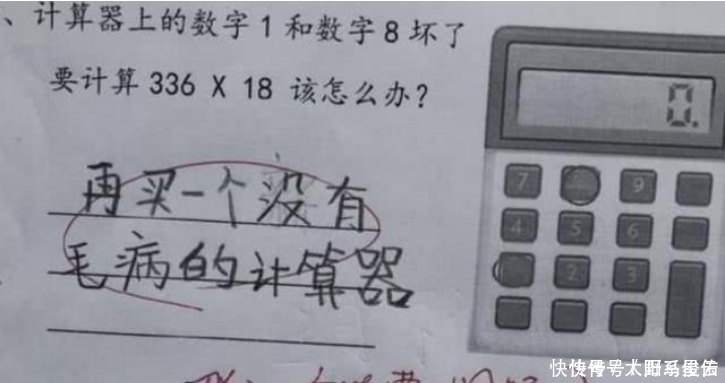 、计算器上的数字1和数字8坏了
要计算 336 X 18 该怎么办?
再买一个没有
毛病的计算器
0.
7 9
4 5 6
2 3